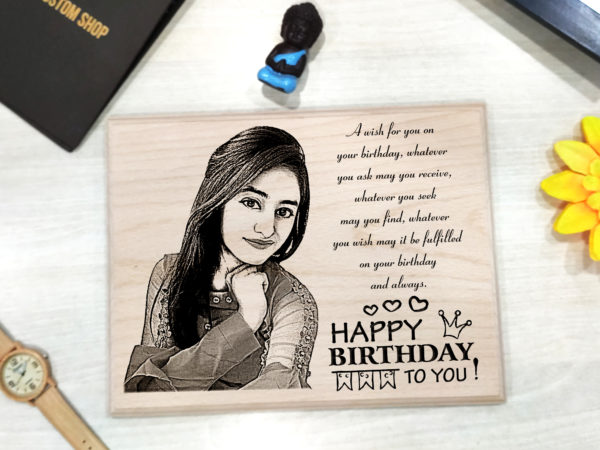 CUSTOM SHOP
A wish for you on
your birthday, whatever
you ask may you receive,
whatever you seek
may you find, whatever
you wish may it be fulfilled
on your birthday
and always.
HAPPY
BIRTHDAY
TO YOU!